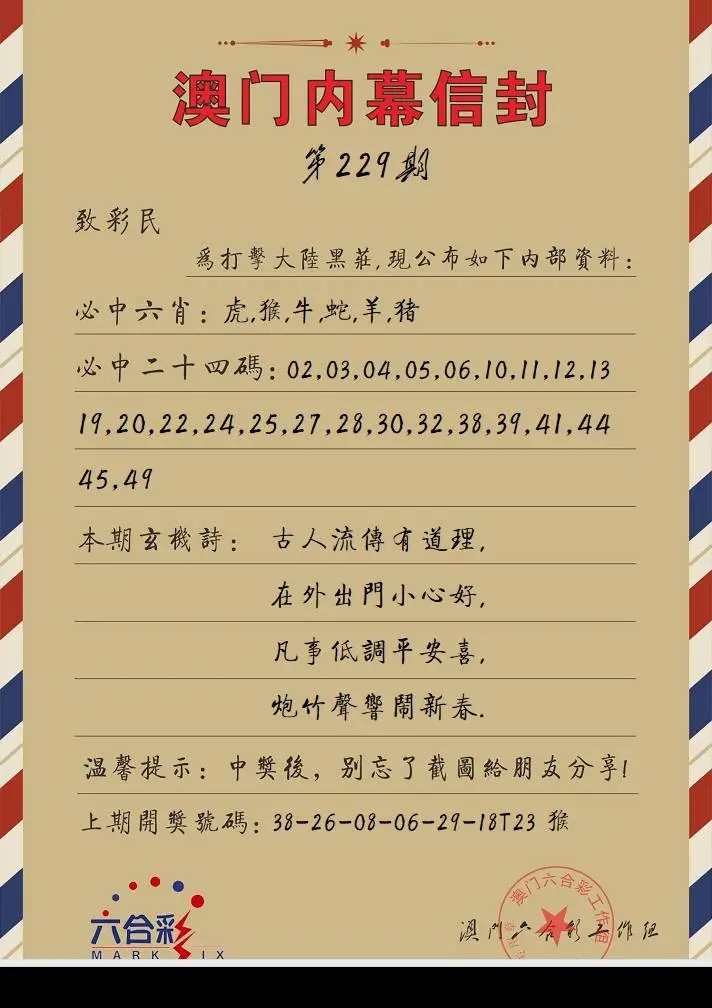 澳门内幕信封
第229期
致彩民
爲打擊大陸黑莊,現公布如下内部資料:
必中六肖:虎,猴,牛,蛇,羊,猪
必中二十四碼:02,03,04,05,06,10,11,12,13
19,20,22,24,25,27,28,30,32,38,39,41,44
45,49
本期玄機詩: 古人流傳有道理,
在外出門小心好,
凡事低調平安喜,
炮竹聲響鬧新春.
温馨提示:中獎後,别忘了截圖給朋友分享!
上期開獎號碼:38-26-08-06-29-18T23 猴
澳门六合彩工作组
六合彩
MARK SIX
澳門六合彩工作組